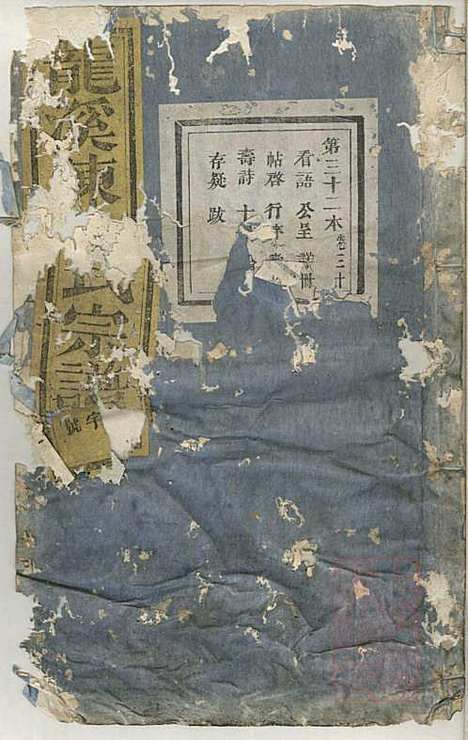 第三十二本 卷三十
看語 公呈 詳冊
帖啓 行
壽詩 十
存疑 跋
龍溪 氏宗譜
字號